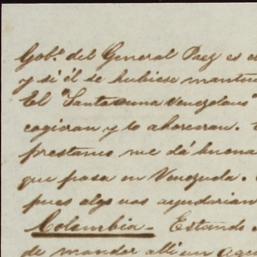 Gob.º del General Paez es e
y si él se hubiese mantu
El "Santa anna Venezolano"
cogieran y lo ahorcaran.
prestamo me dá buena
que pasa en Venezuela.
pues algo nos ayudarian
Colombia – Estando
de mandar alli un Agen